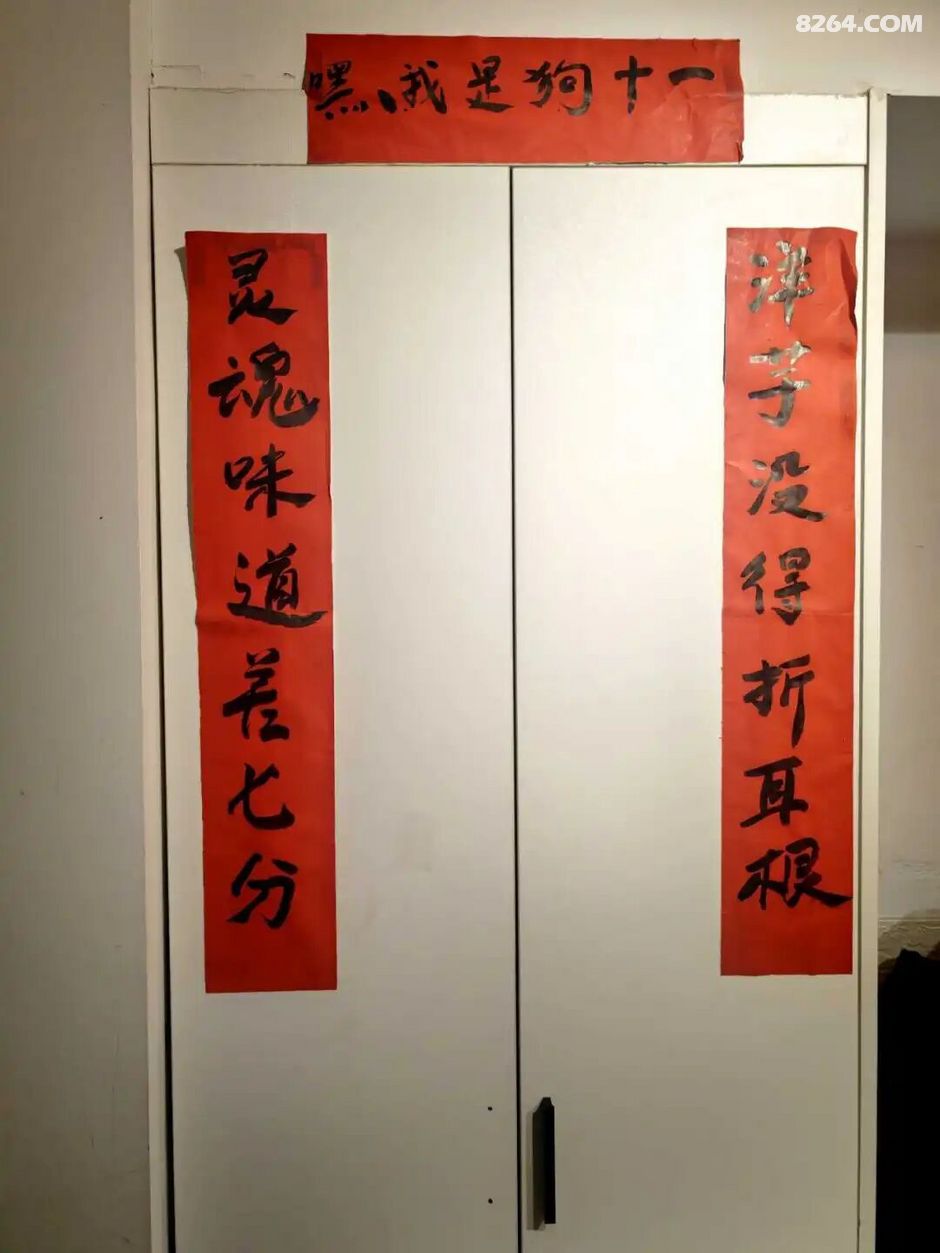 8264.COM
嘿、我是狗十一
洋芋没得折耳根
灵魂味道差七分